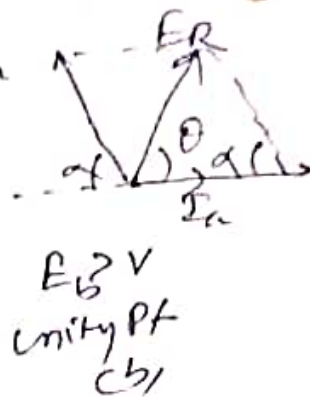 E_R
θ
α α
I_a
E_b > V
Unity Pf
(b)